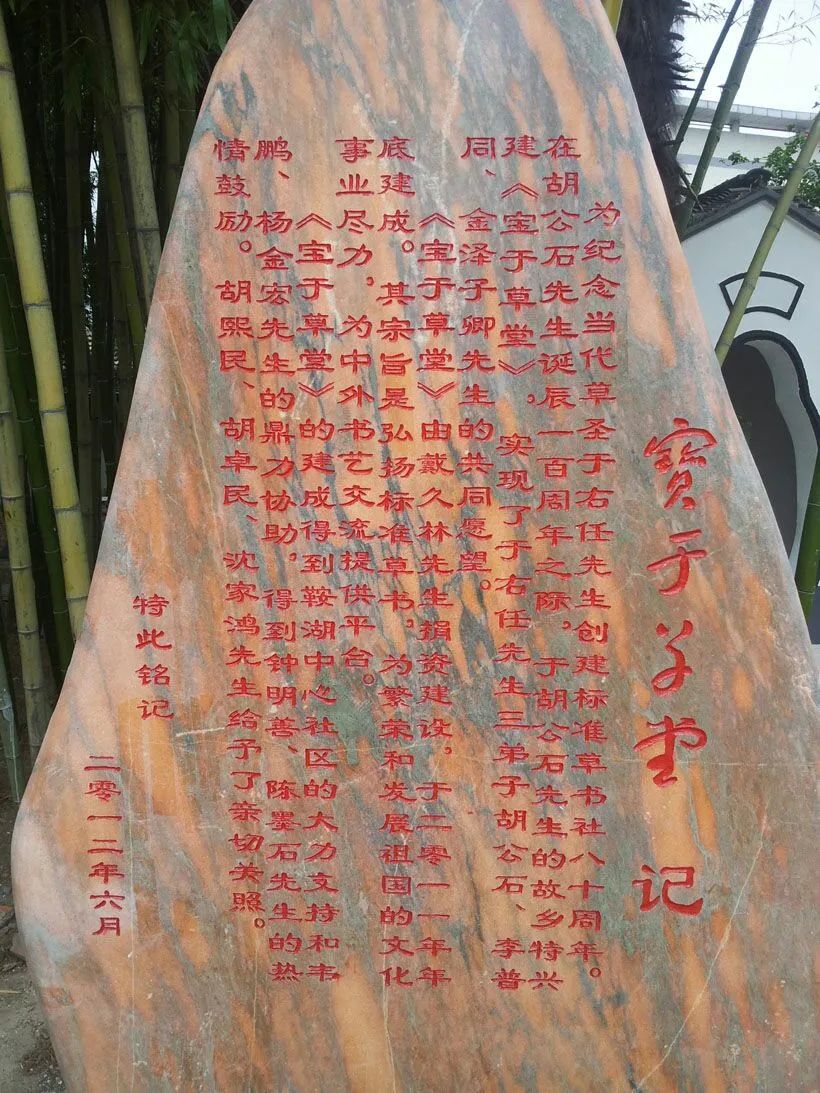 寶于草堂 记
为纪念当代草圣于右任先生创建标准草书社八十周年。
在胡公石先生诞辰一百周年之际，于胡公石先生的故乡特兴
建《宝于草堂》，实现了于右任先生三弟子胡公石、李普
同、金泽子卿先生的共同愿望。
《宝于草堂》由戴久林先生捐资建设，于二零一一年年
底建成。其宗旨是弘扬标准草书，为繁荣和发展祖国的文化
事业尽力，为中外书艺交流提供平台。
《宝于草堂》的建成得到鞍湖中心社区的大力支持和韦
鹏、杨金宏先生的鼎力协助，得到钟明善、陈墨石先生的热
情鼓励。胡熙民、胡卓民、沈家鸿先生给予了亲切关照。
特此铭记
二零一二年六月